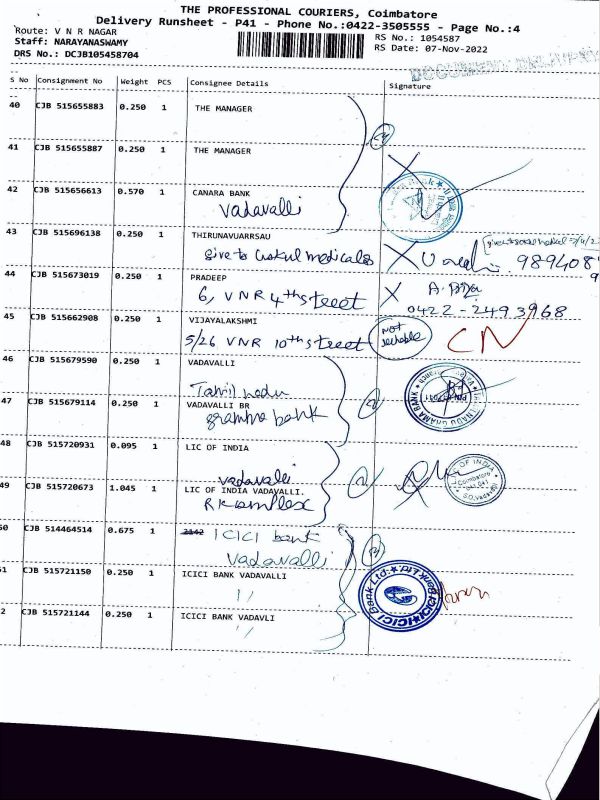 THE PROFESSIONAL COURIERS, Coimbatore
Delivery Runsheet - P41 - Phone No.:0422-3505555 - Page No.:4
Route: V N R NAGAR
Staff: NARAYANASWAMY
DRS No.: DCJB105458704
RS No.: 1054587
RS Date: 07-Nov-2022
S No Consignment No Weight PCS Consignee Details Signature
40 CJB 515655883 0.250 1 THE MANAGER
41 CJB 515655887 0.250 1 THE MANAGER
42 CJB 515656613 0.570 1 CANARA BANK
Vadavalli
43 CJB 515696138 0.250 1 THIRUNAVUARRSAU
give to Gokul medicals 989408
44 CJB 515673019 0.250 1 PRADEEP
6, VNR 4th street
0422-2493968
45 CJB 515662908 0.250 1 VIJAYALAKSHMI
5/26 VNR 10th street Not CN
46 CJB 515679590 0.250 1 VADAVALLI
Tamil nadu
47 CJB 515679114 0.250 1 VADAVALLI BR
grama bank
48 CJB 515720931 0.095 1 LIC OF INDIA
vadavalli
49 CJB 515720673 1.045 1 LIC OF INDIA VADAVALLI.
RK complex
OF INDIA
Coimbatore
0 CJB 514464514 0.675 1 2142 ICICI bank
vadavalli
1 CJB 515721150 0.250 1 ICICI BANK VADAVALLI
ICICI Bank Ltd.
2 CJB 515721144 0.250 1 ICICI BANK VADAVLI